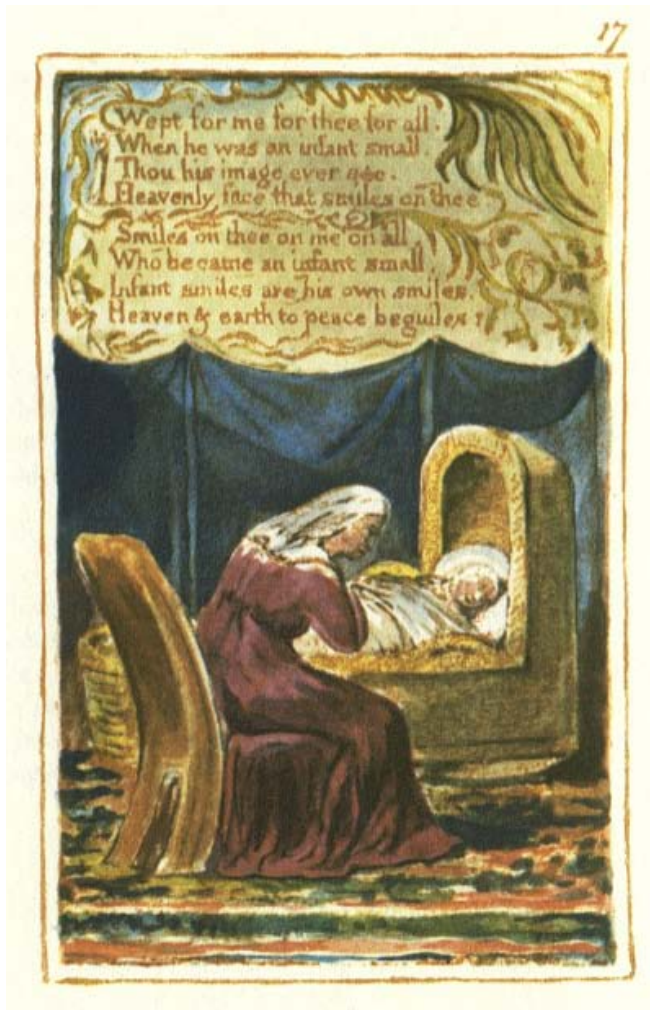 17
Wept for me for thee for all.
When he was an infant small.
Thou his image ever see.
Heavenly face that smiles on thee
Smiles on thee on me on all,
Who became an infant small,
Infant smiles are his own smiles.
Heaven & earth to peace beguiles.